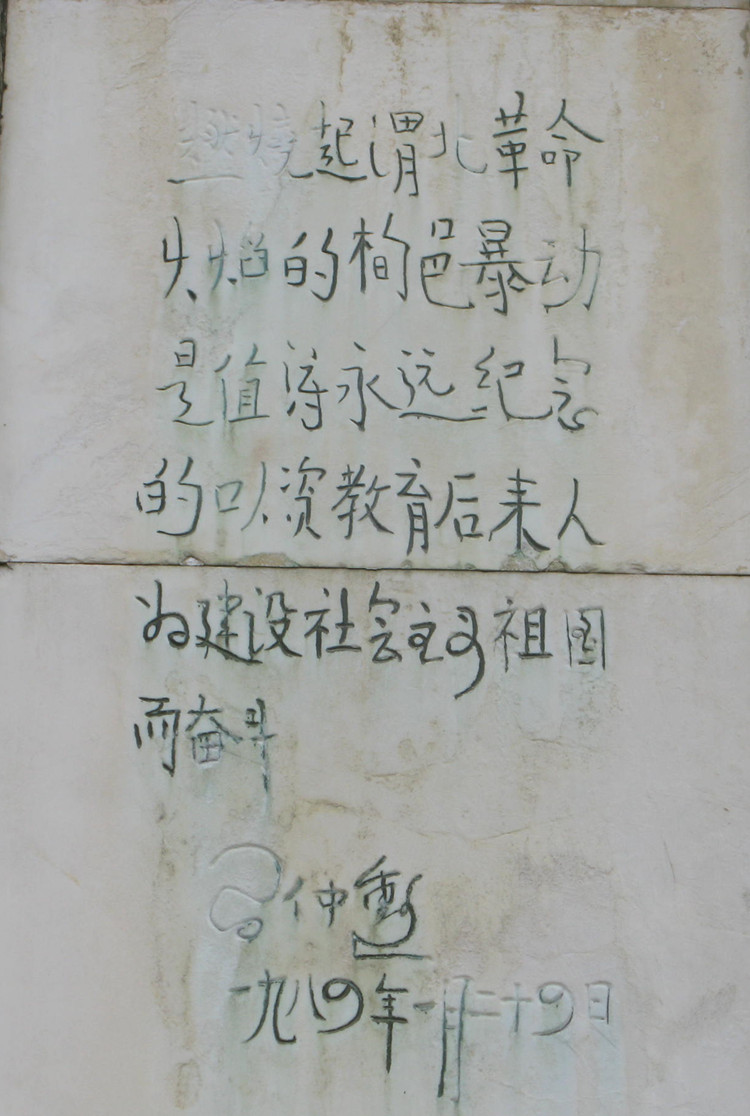 燃烧起渭北革命
火焰的栒邑暴动
是值得永远纪念
的以资教育后来人
为建设社会主义祖国
而奋斗
習仲勳
一九八四年一月二十四日